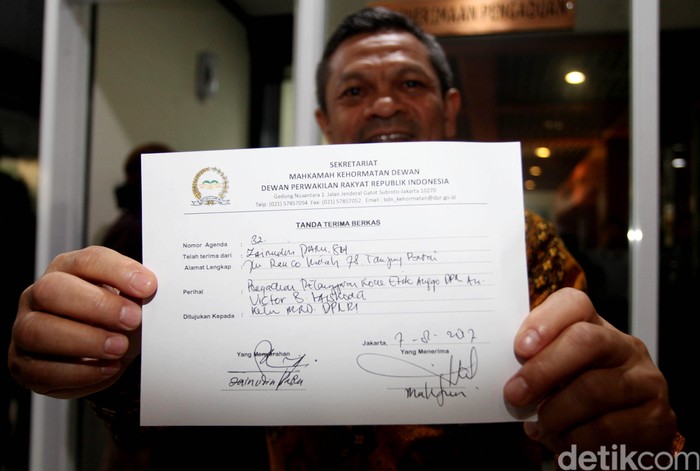 PENERIMAAN PENGADUAN
SEKRETARIAT
MAHKAMAH KEHORMATAN DEWAN
DEWAN PERWAKILAN RAKYAT REPUBLIK INDONESIA
Gedung Nusantara 1 Jalan Jenderal Gatot Subroto-Jakarta 10270
Telp (021) 57857054 Fax (021) 57857052 Email : sdn_kehormatan@dpr.go.id
TANDA TERIMA BERKAS
Nomor Agenda : 82
Telah terima dari : Zainudin Paru, SH
Alamat Lengkap : 78 Tanjung
Perihal : Pengaduan Pelanggaran Kode Etik DPR An.
Victor B Laiskodat
Ditujukan Kepada : MKD DPR RI
Jakarta, 7-8-2017
Yang Menyerahkan Yang Menerima
Zainudin Paru
detikcom